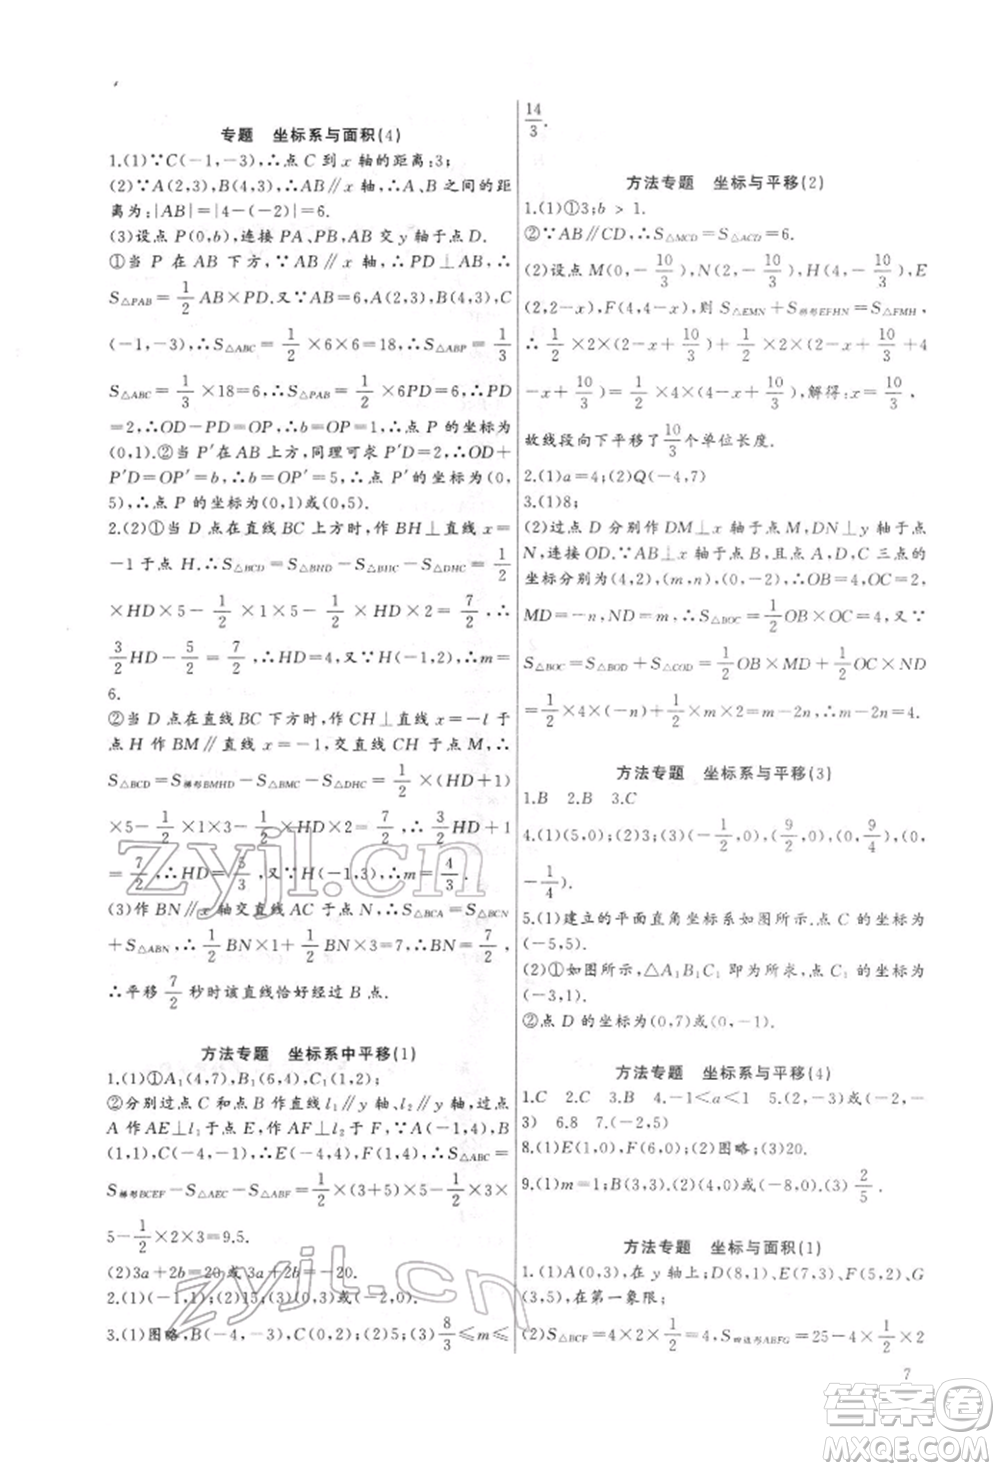 专题 坐标系与面积(4)
1.(1)∵C(-1,-3),∴点C到x轴的距离:3;
(2)∵A(2,3),B(4,3),∴AB∥x轴,∴A、B之间的距
离为:|AB|=|4-(-2)|=6.
(3)设点P(0,b),连接PA、PB,AB交y轴于点D.
①当P在AB下方,∵AB∥x轴,∴PD⊥AB,∴
S△PAB=1/2AB×PD.又∵AB=6,A(2,3),B(4,3),C
(-1,-3),∴S△ABC=1/2×6×6=18,∴S△ABP=1/3
S△ABC=1/3×18=6,∴S△PAB=1/2×6PD=6,∴PD
=2,∴OD-PD=OP,∴b=OP=1,∴点P的坐标为
(0,1).②当P′在AB上方,同理可求P′D=2,∴OD+
P′D=OP′=5,∴b=OP′=5,∴点P′的坐标为(0,
5),∴点P的坐标为(0,1)或(0,5).
2.(2)①当D点在直线BC上方时,作BH⊥直线x=
-1于点H.∵S△BCD=S△BHD-S△DHC=7/2,∴1/2
×HD×5-1/2×1×5-1/2×HD×2=7/2,∴
3/2HD-5/2=7/2,∴HD=4,又∵H(-1,2),∴m=
6.
②当D点在直线BC下方时,作CH⊥直线x=-l于
点H作BM∥直线x=-1,交直线CH于点M,∴
S△BCD=S梯形BMHD-S△BMC-S△DHC=1/2×(HD+1)
×5-1/2×1×3-1/2×HD×2=7/2,∴3/2HD+1
=7/2,∴HD=5/3,又∵H(-1,-3),∴m=4/3.
(3)作BN∥x轴交直线AC于点N,∴S△BCA=S△BCN
+S△ABN,∴1/2BN×1+1/2BN×3=7,∴BN=7/2,
∴平移7/2秒时该直线恰好经过B点.
方法专题 坐标系中平移(1)
1.(1)①A₁(4,7),B₁(6,4),C₁(1,2);
②分别过点C和点B作直线l₁∥y轴,l₂∥y轴,过点
A作AE⊥l₁于点E,作AF⊥l₂于点F,∵A(-1,4),B
(1,1),C(-4,-1),∴E(-4,4),F(1,4),∴S△ABC=
S梯形BCEF-S△AEC-S△ABF=1/2×(3+5)×5-1/2×3×
5-1/2×2×3=9.5.
(2)3a+2b=20或3a+2b=-20.
2.(1)(-1,1);(2)15;(3)(0,4)或(-2,0).
3.(1)图略,B(-4,-3),C(0,2);(2)5;(3)8/3≤m≤
14/3.
方法专题 坐标与平移(2)
1.(1)①3;b > 1.
②∵AB∥CD,∴S△MCD=S△ACD=6.
(2)设点M(0,-10/3),N(2,-10/3),H(4,-10/3),E
(2,2-x),F(4,4-x),则S△EMN+S梯形EFHN=S△FMH,
∴1/2×2×(2-x+10/3)+1/2×2×(2-x+10/3+4
-x+10/3)=1/2×4×(4-x+10/3),解得:x=10/3.
故线段向下平移了10/3个单位长度.
2.(1)a=4;(2)Q(-4,7)
3.(1)8;
(2)过点D分别作DM⊥x轴于点M,DN⊥y轴于点
N,连接OD.∵AB⊥x轴于点B,且点A,D,C三点的
坐标分别为(4,2),(m,n),(0,-2),∴OB=4,OC=2,
MD=-n,ND=m,∴S△BOC=1/2OB×OC=4,又∵
S△BOC=S△BOD+S△COD=1/2OB×MD+1/2OC×ND
=1/2×4×(-n)+1/2×m×2=m-2n,∴m-2n=4.
方法专题 坐标系与平移(3)
1.B 2.B 3.C
4.(1)(5,0);(2)3;(3)(-1/2,0),(9/2,0),(0,9/4),(0,
-1/4).
5.(1)建立的平面直角坐标系如图所示.点C的坐标为
(-5,5).
(2)①如图所示,△A₁B₁C₁即为所求,点C₁的坐标为
(-3,1).
②点D的坐标为(0,7)或(0,-1).
方法专题 坐标系与平移(4)
1.C 2.A 3.B 4.-1<a<1 5.(-2,-
3) 6.8 7.(-2,5)
8.(1)E(1,0),F(6,0);(2)图略;(3)20.
9.(1)m=1;B(3,3);(2)(4,0)或(-8,0).(3)2/5.
方法专题 坐标与面积(1)
1.(1)A(0,3),在y轴上;D(8,1),E(7,3),F(5,2),G
(3,5),在第一象限;
(2)S△BCF=1/2×2×4=4;S四边形ABFG=25-4×1/2×2
7
答案圈
MXQE.COM
zyjl.cn
zyjl.cn